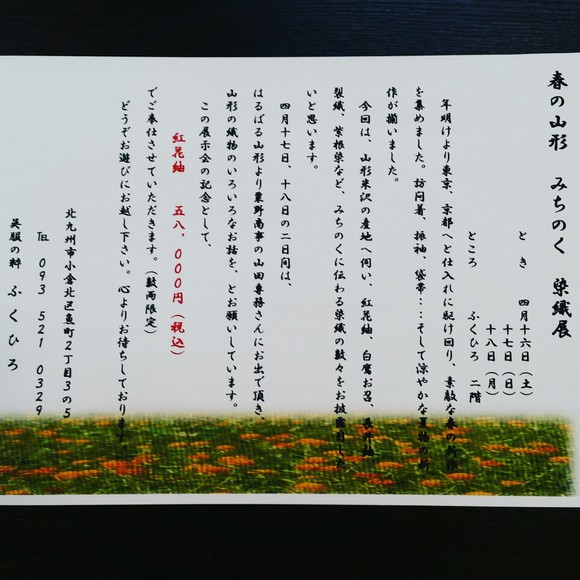 春の山形　みちのく　染織展
とき　四月十六日（土）
十七日（日）
十八日（月）
ところ　ふくひろ　二階
年明けより東京、京都へと仕入れに駆け回り、素敵な春の新作
を集めました。訪問着、振袖、袋帯：：：そして涼やかな夏物の新
作が揃いました。
今回は、山形米沢の産地へ伺い、紅花紬、白鷹お召、長井紬
裂織、紫根染など、みちのくに伝わる染織の数々をお披露目した
いと思います。
四月十七日、十八日の二日間は、
はるばる山形より粟野商事の山田専務さんにお出で頂き、
山形の織物のいろいろなお話を、とお願いしています。
この展示会の記念として、
紅花紬　五八、０００円（税込）
でご奉仕させていただきます。（数両限定）
どうぞお遊びにお越し下さい。心よりお待ちしております
北九州市小倉北区魚町２丁目３の５
℡　０９３　５２１　０３２９
呉服の粋　ふくひろ